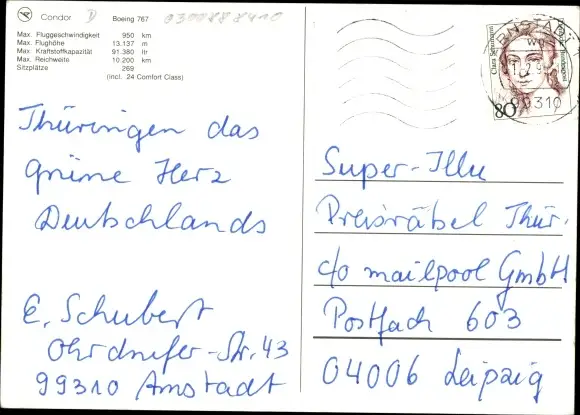 Condor D Boeing 767
Max. Fluggeschwindigkeit 950 km
Max. Flughöhe 13.137 m
Max. Kraftstoffkapazität 91.380 ltr
Max. Reichweite 10.200 km
Sitzplätze 269
(incl. 24 Comfort Class)
Thüringen das
grüne Herz
Deutschlands
E. Schubert
Ohrdrufer-Str. 43
99310 Arnstadt
Clara Schumann
80
99310
Super-Illu
Preisrätsel Thür.
c/o mailpool GmbH
Postfach 603
04006 Leipzig